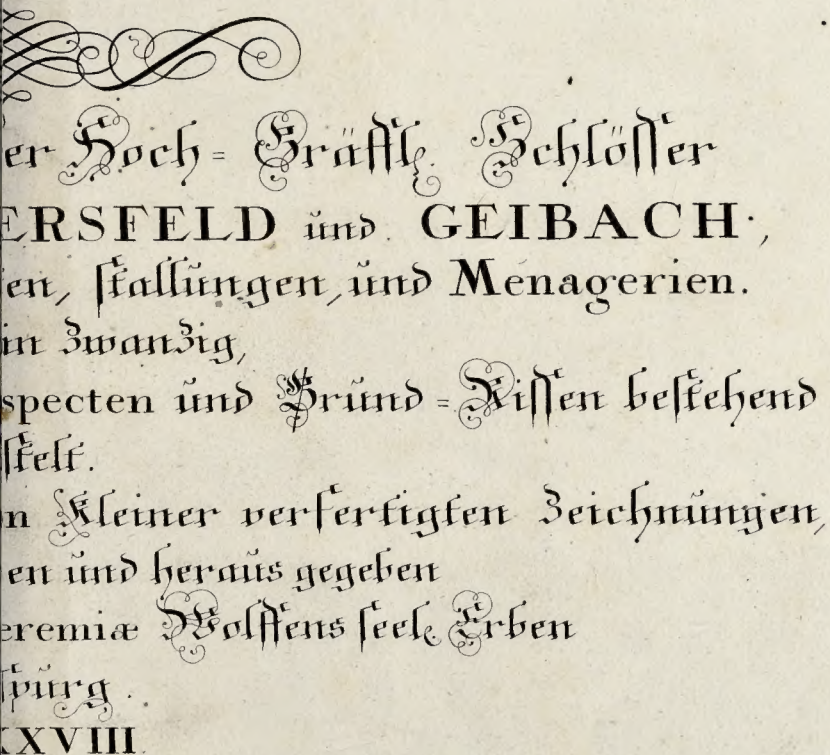 er Hoch = Gräffl. Schlösser
ERSFELD und. GEIBACH.,
en, stallungen, und Menagerien.
in zwanzig,
specten und Grund = Rissen bestehend
stelt.
n Kleiner verfertigten Zeichnungen,
en und heraus gegeben
eremiæ Wolffens seel. Erben
spurg.
XXVIII